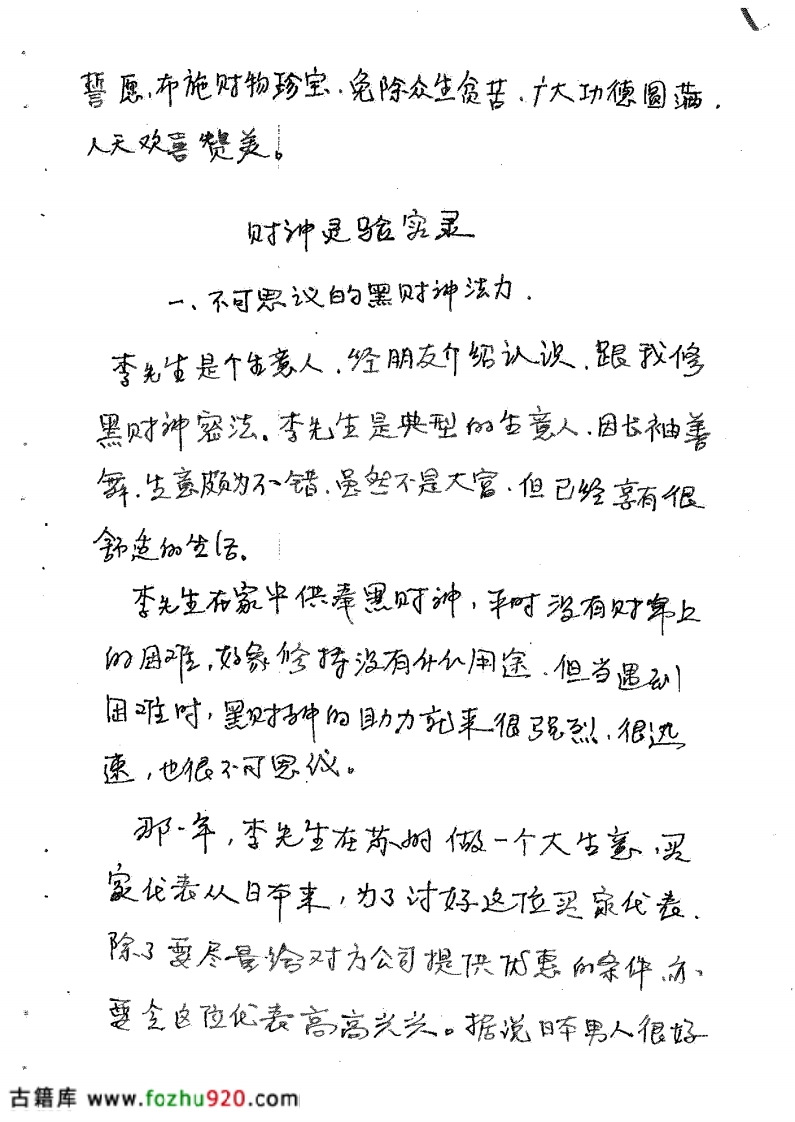 誓愿,布施财物珍宝,免除众生贫苦,广大功德圆满,
人天欢喜赞美。
财神灵验实录
一、不可思议的黑财神法力.
李先生是个生意人,经朋友介绍认识,跟我修
黑财神密法。李先生是典型的生意人,因长袖善
舞,生意颇为不错,虽然不是大富,但已经享有很
舒适的生活。
李先生在家中供奉黑财神,平时没有财富上
的困难,好象修持没有什么用途,但当遇到
困难时,黑财神的助力就来很强烈,很迅
速,也很不可思议。
那一年,李先生在苏州做一个大生意,买
家代表从日本来,为了讨好这位买家代表,
除了要尽量给对方公司提供优惠的条件,亦
要令这位代表高高兴兴。据说日本男人很好
古籍库 www.fozhu920.com